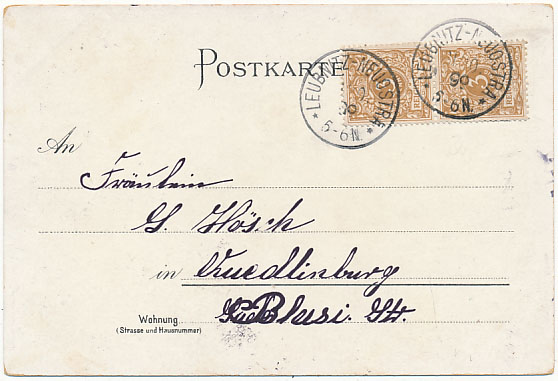 POSTKARTE
LEUBNITZ-NEUOSTRA
96
5-6N.
LEUBNITZ-NEUOSTRA
96
5-6N.
3
An
Fräulein
G. Hösch
in Quedlinburg
Blasi. Str.
Wohnung
(Strasse und Hausnummer)